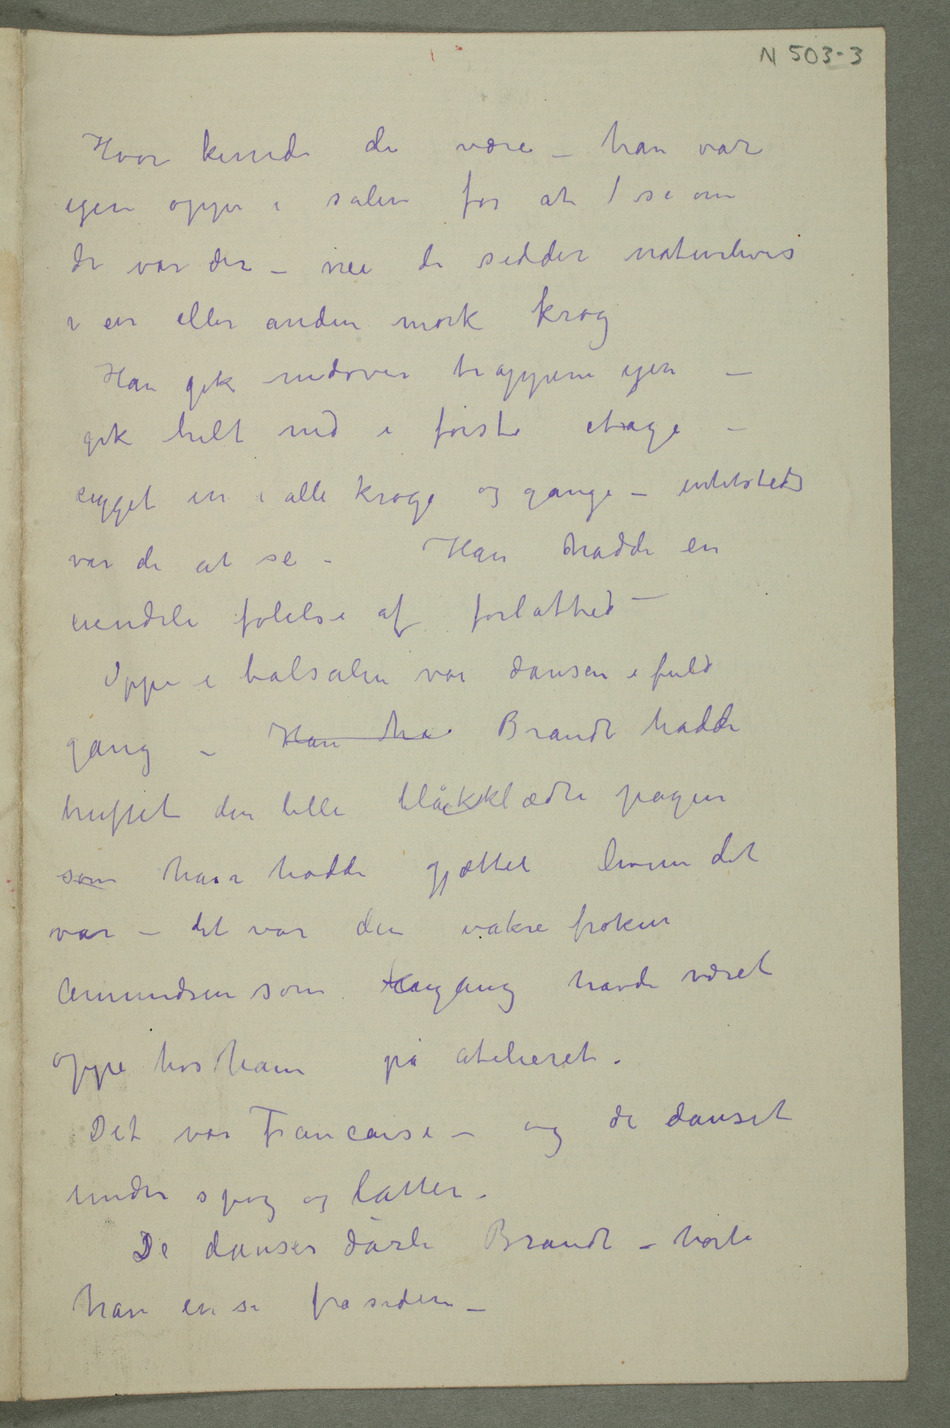 N 503-3
Hvor kunde de være – han var
igen oppe i salen for at se om
de var der – nei de sidder naturlivis
i en eller anden mørk krog
Han gik nedover trappene igen –
gik helt ned i første etage –
kigget in i alle kroge og gange – intetsteds
var de at se – Han hadde en
uendeli følelse af forlathed –
Oppe i balsalen var dansen i fuld
gang – Han ha Brandt hadde
truffet den lille blåkklædte pagen
som han hadde gjættet hvem det
var – det var den vakre frøken
Amundsen som engang havde været
oppe hos ham på atelieret.
Det var Francaise – og de danset
under spøg og latter.
De danser dårli Brandt – hørte
han en si fra siden –